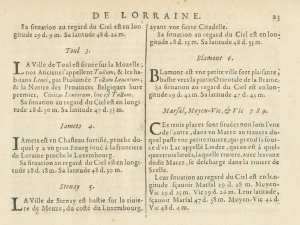 DE LORRAINE. 23
Sa situation au regard du Ciel est en longitude 29 d. 9 m. Sa latitude 48 d. 22 m.
Toul 3.
LA Ville de Toul est située sur la Moselle;
nos Anciens l'appellent Tullum, & les habi-
tans Leuci, que Ptolomée
& la Notice des Provinces Belgiques luce
premier, Civitas Leucorum, Tullum.
Sa situation au regard du Ciel est en longi-
tude 28 d. 50 m. Sa latitude 47 d. 53 m.
Iamets 4.
IAmets est un Chasteau fortifié, proche du-
quel y a un grand Estang situé à la frontiere
de Loraine proche le Luxembourg.
Sa situation au regard du Ciel est en longi-
tude 28 d. 18 m. Sa latitude 48 d. 55 m.
Stenay 5.
LA Ville de Stenay est bastie sur la rivie-
re de Meuze, du costé du Luxembourg,
ayant une forte Citadelle.
Sa situation au regard du Ciel est en long.
28 d. 15 m. Sa latitude 48 d. 53 m.
Blamont 6.
BLamont est une petite ville fort plaisante,
bastie vers la principauté de Salme.
Sa situation au regard du Ciel est en long.
29 d. 42 m. Sa latitude 48 d. 21 m.
Marsal, Moyen-Vic, & Vic 7 8 9.
CEs trois places sont situées non loin l'une
de l'autre, dans un Marais au travers du-
quel passe une petite riviere, qui prend sa sour-
ce d'un Lac appellé Lindre,
laquelle riviere, avec
dite Marez, se décharge dans la riviere de
Seille.
Leur situation au regard du Ciel est en long.
sçavoir Marsal 29 d. 28 m. Moyen-
Vic 29 d. 23 m. Vic 29 d. 18 m. Leur latitude,
sçavoir Marsal 47 d. 58 m. Moyen-Vic 42 d.
Vic 48 d. 4 m.